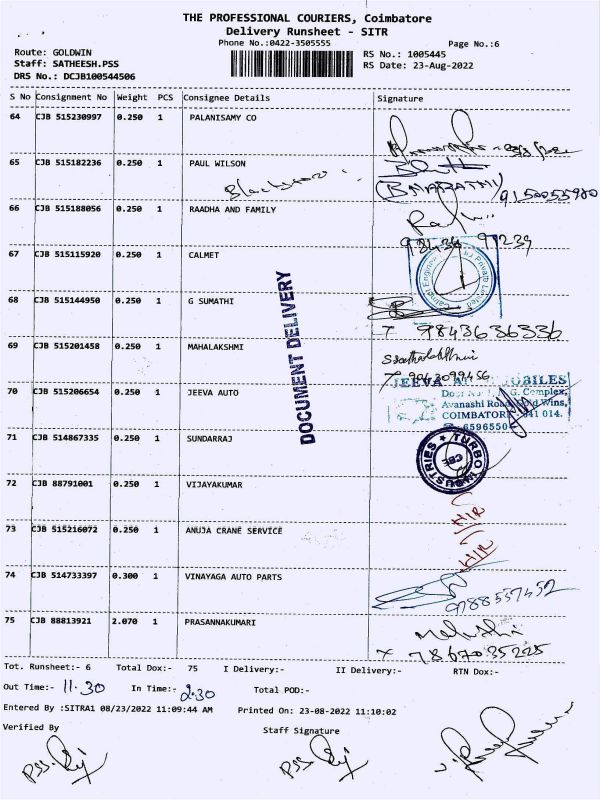 THE PROFESSIONAL COURIERS, Coimbatore
Delivery Runsheet - SITR
Phone No.:0422-3505555
Page No.:6
Route: GOLDWIN
RS No.: 1005445
Staff: SATHEESH.PSS
RS Date: 23-Aug-2022
DRS No.: DCJB100544506
S No Consignment No Weight PCS Consignee Details Signature
64 CJB 515230997 0.250 1 PALANISAMY CO
65 CJB 515182236 0.250 1 PAUL WILSON
(BHARATHI)
66 CJB 515188056 0.250 1 RAADHA AND FAMILY
67 CJB 515115920 0.250 1 CALMET
68 CJB 515144950 0.250 1 G SUMATHI
9843636336
69 CJB 515201458 0.250 1 MAHALAKSHMI
9043099456
DOCUMENT DELIVERY
70 CJB 515206654 0.250 1 JEEVA AUTO
JEEVA
Complex,
Avanashi Road,
COIMBATORE 641 014.
6596550
71 CJB 514867335 0.250 1 SUNDARRAJ
TURBO INDUSTRIES
CBE
72 CJB 88791001 0.250 1 VIJAYAKUMAR
H/R
73 CJB 515216072 0.250 1 ANUJA CRANE SERVICE
H/R
74 CJB 514733397 0.300 1 VINAYAGA AUTO PARTS
9788557452
75 CJB 88813921 2.070 1 PRASANNAKUMARI
Tot. Runsheet:- 6 Total Dox:- 75 I Delivery:- II Delivery:- RTN Dox:-
Out Time:- 11.30 In Time:- 2.30 Total POD:-
Entered By :SITRA1 08/23/2022 11:09:44 AM Printed On: 23-08-2022 11:10:02
Verified By Staff Signature
PSS PSS